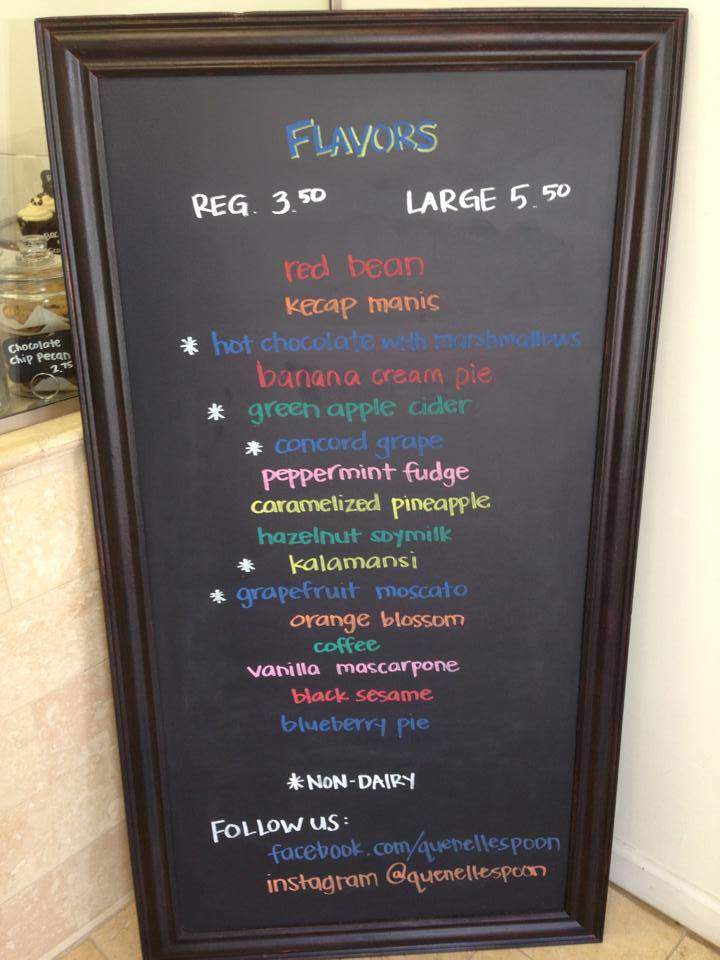 FLAVORS
REG. 3.50 LARGE 5.50
red bean
kecap manis
* hot chocolate with marshmallows
banana cream pie
* green apple cider
* concord grape
peppermint fudge
caramelized pineapple
hazelnut soymilk
* kalamansi
* grapefruit moscato
orange blossom
coffee
vanilla mascarpone
black sesame
blueberry pie
*NON-DAIRY
FOLLOW US:
facebook.com/quenellespoon
instagram @quenellespoon
Chocolate
Chip Pecan
2.75